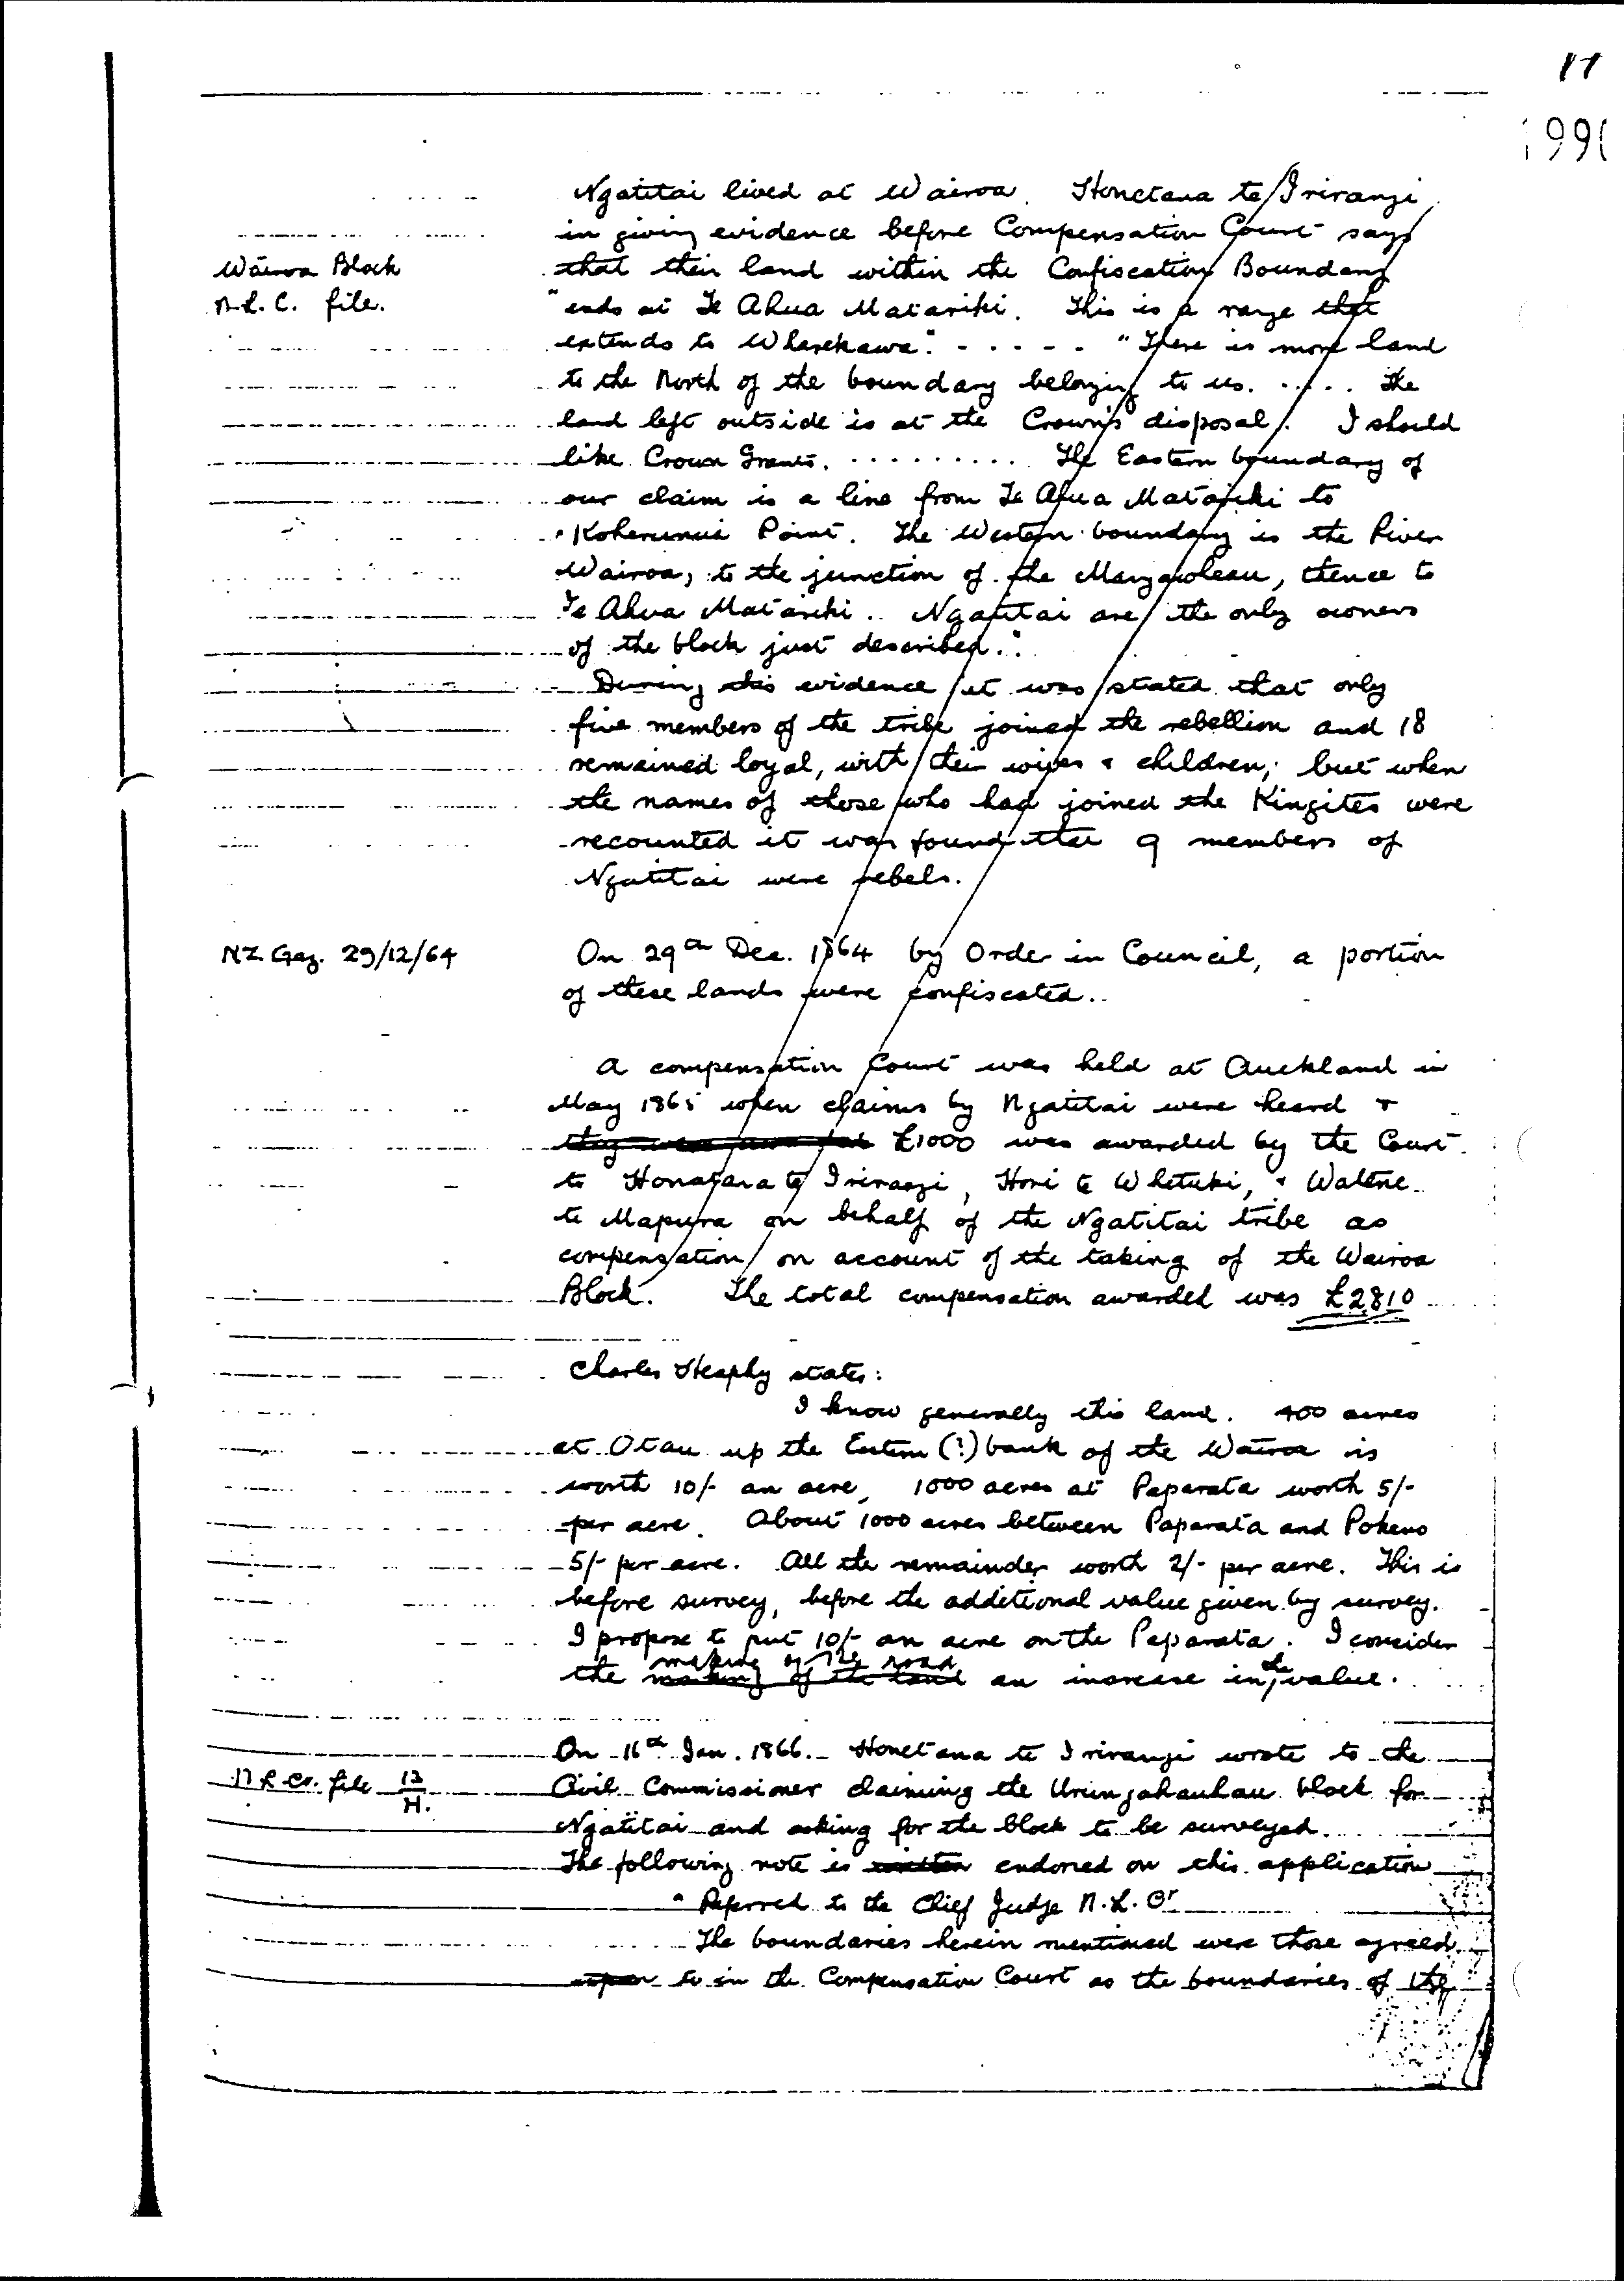 17
199
Ngatitai lived at Wairoa. Honetana te Irirangi
in giving evidence before Compensation Court says
Wairoa Block
that their land within the Confiscation Boundary
N.L.C. file.
"ends at Te Ahua Matariki. This is a range that
extends to Wharekawa". - - - - - "There is more land
to the North of the boundary belonging to us. ..... The
land left outside is at the Crown's disposal. I should
like Crown Grants. .......... The Eastern boundary of
our claim is a line from Te Ahua Matariki to
Koherunui Point. The Western boundary is the River
Wairoa, to the junction of the, thence to
Te Ahua Matariki.. Ngatitai are the only owners
of the block just described."
During this evidence it was stated that only
five members of the tribe joined the rebellion and 18
remained loyal, with their wives & children; but when
the names of those who had joined the Kingites were
recounted it was found that 9 members of
Ngatitai were rebels.
NZ. Gaz. 29/12/64
On 29th Dec. 1864 by Order in Council, a portion
of these lands were confiscated.
A compensation Court was held at Auckland in
May 1865 when claims by Ngatitai were heard &
they were awarded £1000 was awarded by the Court
to Honatana te Irirangi, Hori te Whetuki, & Watene
te Mapura on behalf of the Ngatitai tribe as
compensation on account of the taking of the Wairoa
Block. The total compensation awarded was £2810
Charles Heaphy states:
I know generally this land. 400 acres
at Otau up the Eastern (?) bank of the Wairoa is
worth 10/- an acre, 1000 acres at Paparata worth 5/-
per acre. About 1000 acres between Paparata and Pokeno
5/- per acre. All the remainder worth 2/- per acre. This is
before survey, before the additional value given by survey.
I propose to put 10/- an acre on the Paparata. I consider
making of the road
the making of the land an increase in the value.
On 16th Jan. 1866. Honetana te Irirangi wrote to the
N L Ct. file 13/H.
Civil Commissioner claiming the Urungahauhau block for
Ngatitai and asking for the block to be surveyed.
The following note is written endorsed on this application
"Referred to the Chief Judge N.L.Ct
The boundaries herein mentioned were those agreed
upon to in the Compensation Court as the boundaries of the